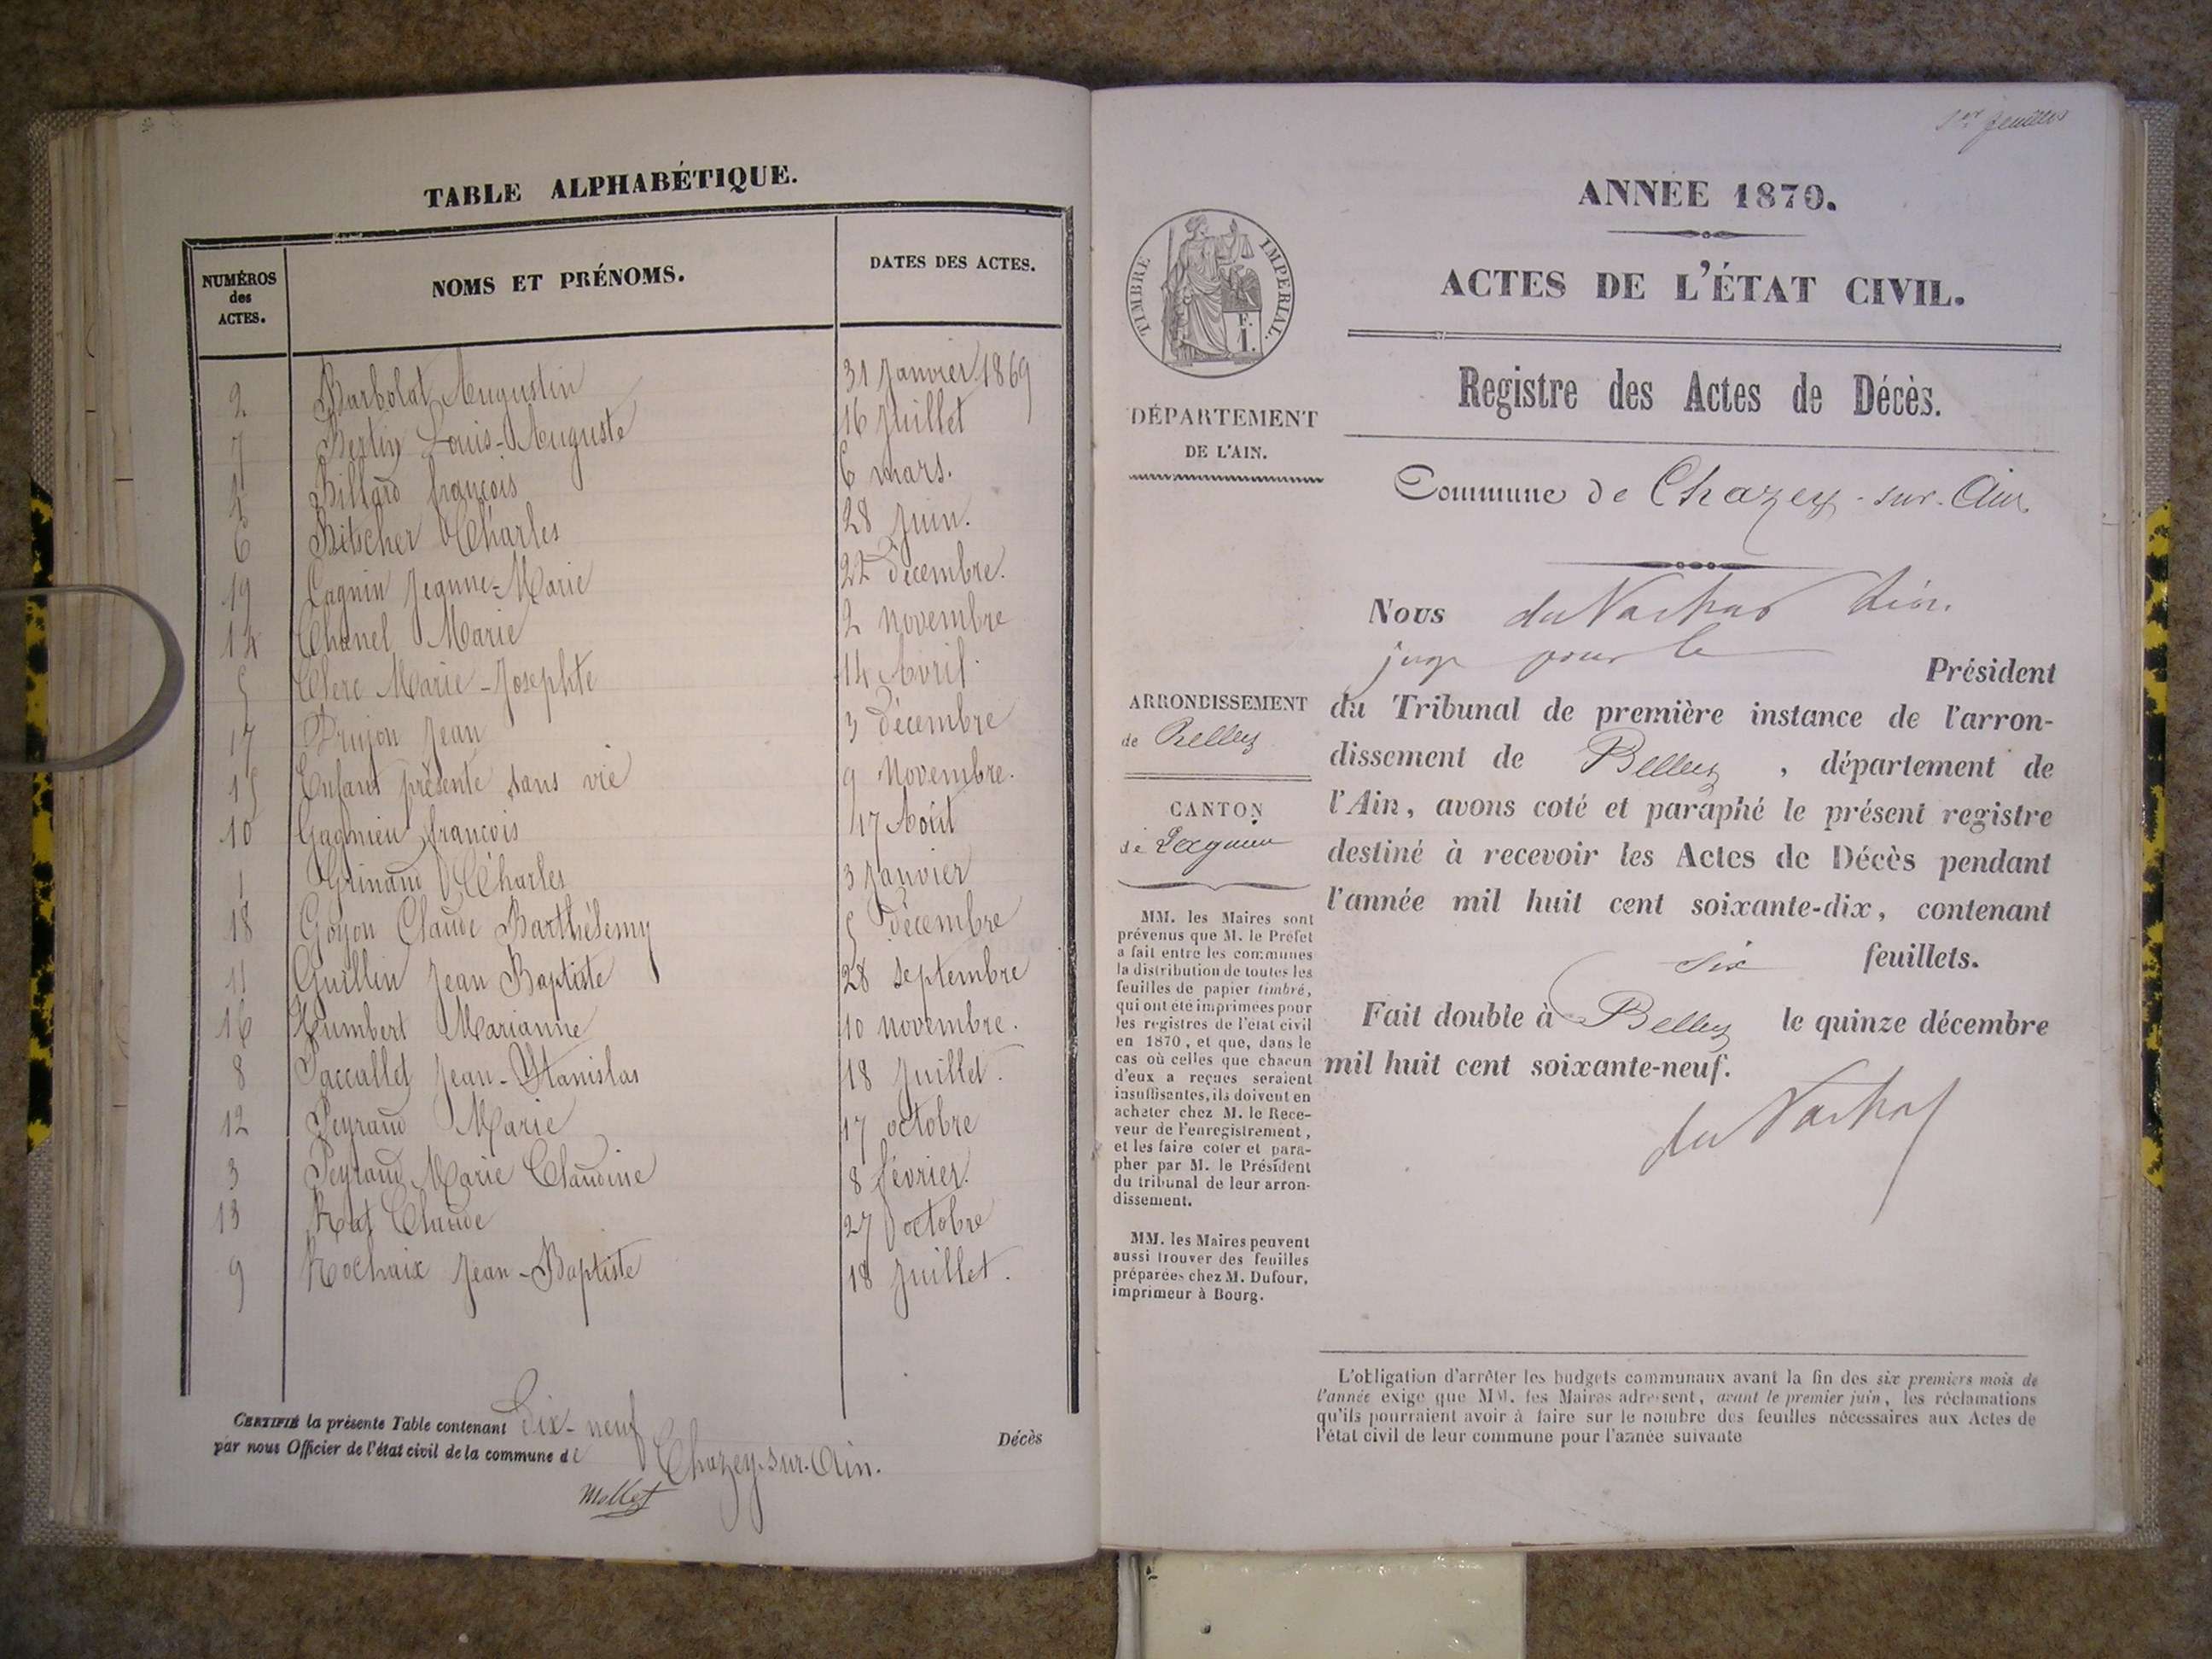 TABLE ALPHABÉTIQUE.
NUMÉROS des ACTES. NOMS ET PRÉNOMS. DATES DES ACTES.
2 Barbolat Augustin 31 Janvier 1869
7 Bertin Louis-Auguste 16 Juillet
4 Billard françois 6 mars.
6 Bitscher Charles 28 Juin.
19 Cagnin Jeanne-Marie 22 décembre.
14 Chanel Marie 2 Novembre
5 Clerc Marie-Josephte 14 Avril.
17 Drujon Jean 3 décembre
15 Enfant présenté sans vie 9 Novembre.
10 Gagnieu françois 17 Août
1 Grinand Charles 3 Janvier
18 Goyon Claude Barthélemy 5 décembre
11 Guillin Jean Baptiste 28 septembre
16 Humbert Marianne 10 novembre.
8 Paccallet Jean-Stanislas 18 Juillet.
12 Peyraud Marie 17 octobre
3 Peyraud Marie Claudine 8 février.
13 Rat Claude 27 octobre
9 Rochaix Jean-Baptiste 18 Juillet.
CERTIFIÉ la présente Table contenant Dix-neuf Décès
par nous Officier de l'état civil de la commune de Chazey-sur-Ain.
Mollet
1er feuillet
ANNÉE 1870.
ACTES DE L'ÉTAT CIVIL.
Registre des Actes de Décès.
Commune de Chazey-sur-Ain
TIMBRE IMPERIAL.
DÉPARTEMENT
DE L'AIN.
ARRONDISSEMENT
de Belley
CANTON
de Lagnieu
MM. les Maires sont
prévenus que M. le Préfet
a fait entre les communes
la distribution de toutes les
feuilles de papier timbré,
qui ont été imprimées pour
les registres de l'état civil
en 1870, et que, dans le
cas où celles que chacun
d'eux a reçues seraient
insuffisantes, ils doivent en
acheter chez M. le Rece-
veur de l'enregistrement,
et les faire coter et para-
pher par M. le Président
du tribunal de leur arron-
dissement.
MM. les Maires peuvent
aussi trouver des feuilles
préparées chez M. Dufour,
imprimeur à Bourg.
Nous du
juge pour le Président
du Tribunal de première instance de l'arron-
dissement de Belley, département de
l'Ain, avons coté et paraphé le présent registre
destiné à recevoir les Actes de Décès pendant
l'année mil huit cent soixante-dix, contenant
six feuillets.
Fait double à Belley le quinze décembre
mil huit cent soixante-neuf.
L'obligation d'arrêter les budgets communaux avant la fin des six premiers mois de
l'année exige que MM. les Maires adressent, avant le premier juin, les réclamations
qu'ils pourraient avoir à faire sur le nombre des feuilles nécessaires aux Actes de
l'état civil de leur commune pour l'année suivante